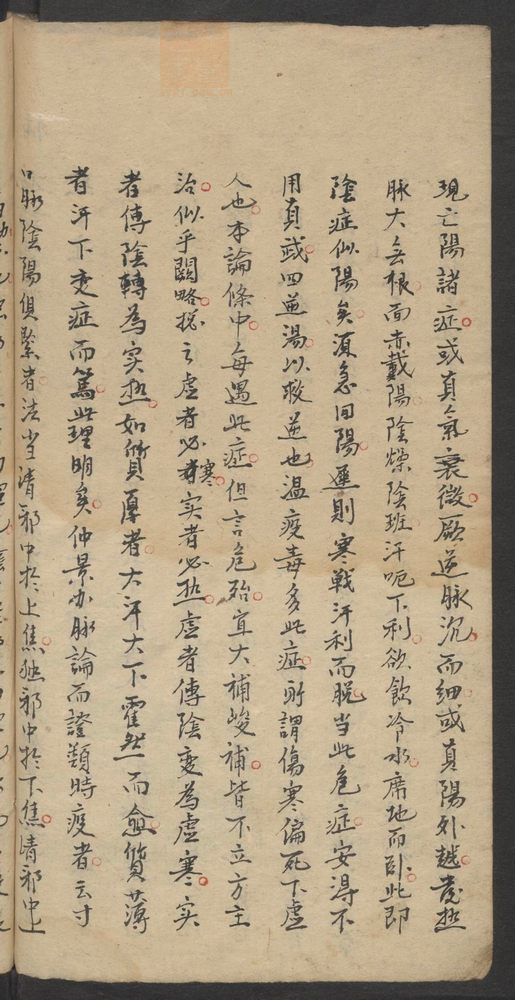 現亡陽諸症或真氣衰微厥逆脉沉而細或真陽外越發热
脉大無根面赤戴陽陰燥陰班汗呃下利欲飲冷水席地而卧此即
陰症似陽矣須急回陽遲則寒戰汗利而脱当此危症安淂不
用真武四逆湯以救逆也温疫毒多此症所謂傷寒偏死下虚
人也本論條中每遇此症但言危殆宜大補峻補皆不立方主
治似乎闕略揔之虚者必寒实者必热虚者傳陰变為虚寒实
者傳陰轉為实热如質厚者大汗大下霍然而愈質薄
者汗下变症而篤此理明矣仲景办脉論而證類時疫者云寸
口脉陰陽俱緊者法当清邪中扵上焦独邪中扵下焦清邪中上